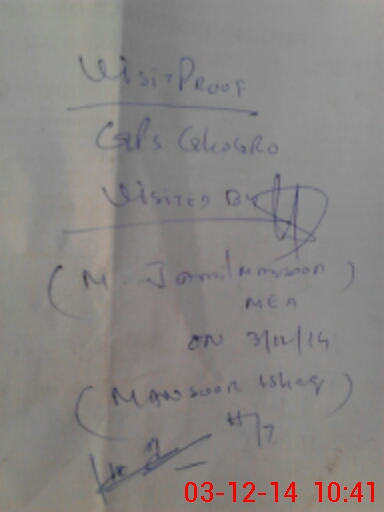 Visit Proof
GPS Ghogro
Visited By
(M. Jamil Mansoor)
MEA
ON 3/12/14
(Mansoor Ishaq)
H/T
03-12-14 10:41